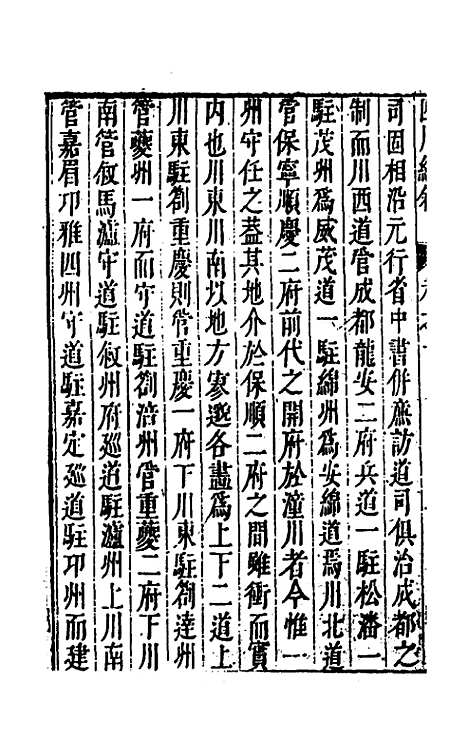 司因相沿元行省中書併廉訪道司俱治成都之
制而川西道管成都龍安二府兵道一駐松潘一
駐茂州爲威茂道一駐綿州爲安綿道焉川北道
管保寧順慶二府前代之開府於潼川者今惟一
州守任之蓋其地介於保順二府之間雖衝而實
内也川東川南以地方寥邈各畫爲上下二道上
川東駐劄重慶則管重慶一府下川東駐劄達州
管夔州一府而守道駐劄涪州管重夔二府下川
南管敘馬瀘守道駐敘州府巡道駐瀘州上川南
管嘉眉卭雅四州守道駐嘉定巡道駐卭州而建